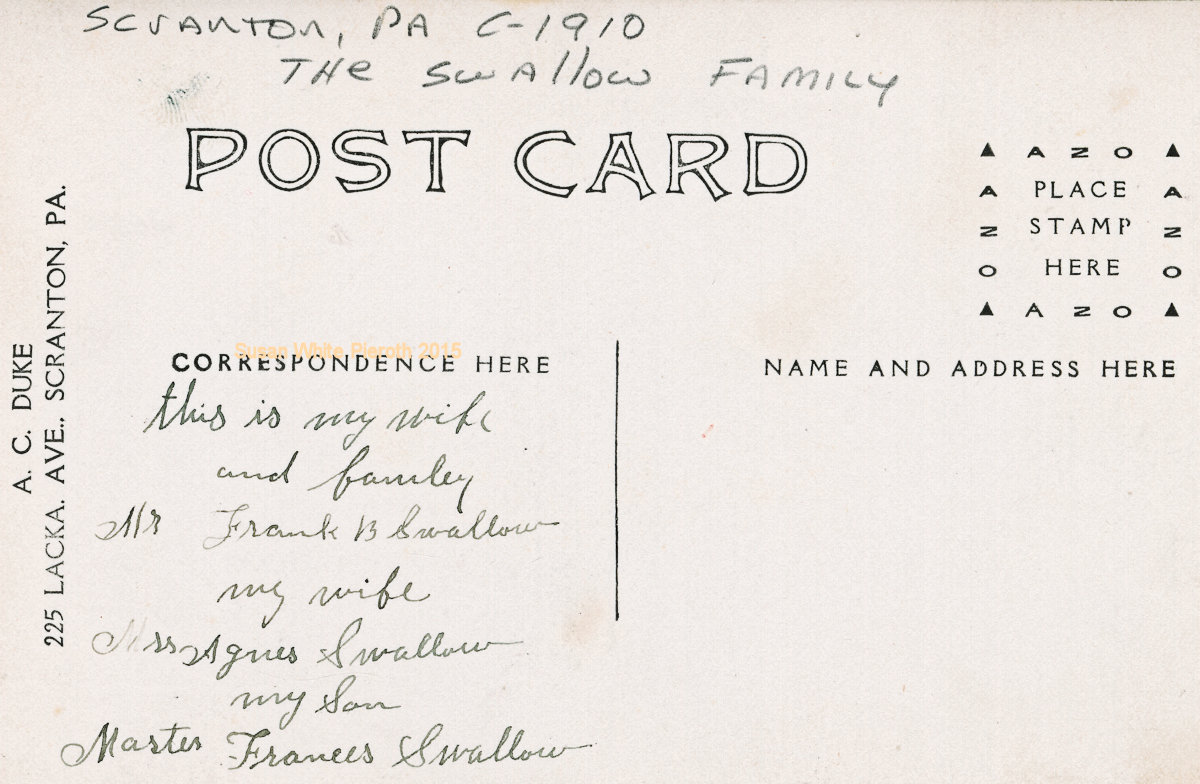 Scranton, PA C-1910
THe Swallow FAMILY
POST CARD
▲ A Z O ▲
A PLACE A
N STAMP N
O HERE O
▲ A Z O ▲
A. C. DUKE
225 LACKA. AVE., SCRANTON, PA.
Susan White Pieroth 2015
CORRESPONDENCE HERE
NAME AND ADDRESS HERE
this is my wife
and famley
Mr Frank B Swallow
my wife
Mrs Agnes Swallow
my Son
Master Frances Swallow